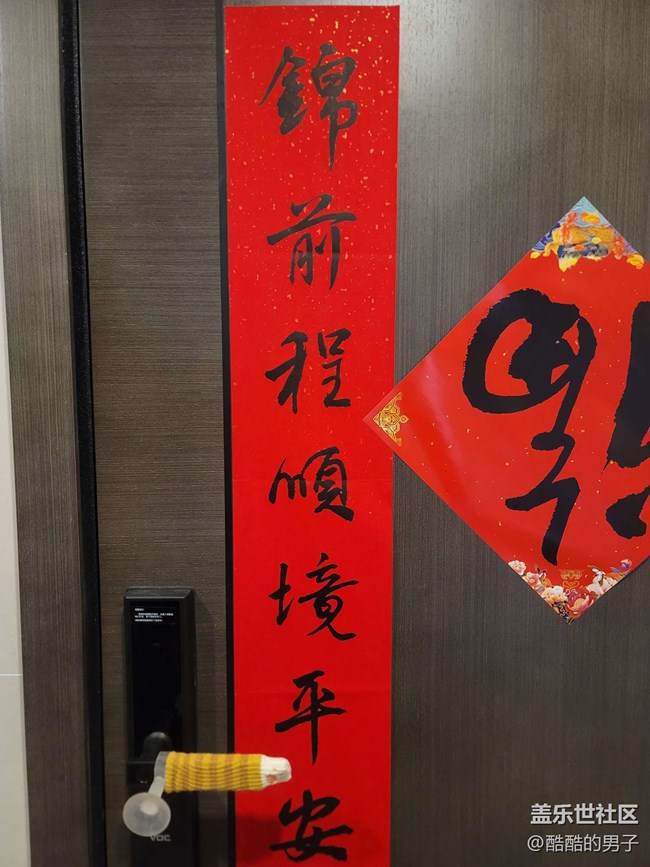 錦前程順境平安
福
VOC
盖乐世社区
@酷酷的男子